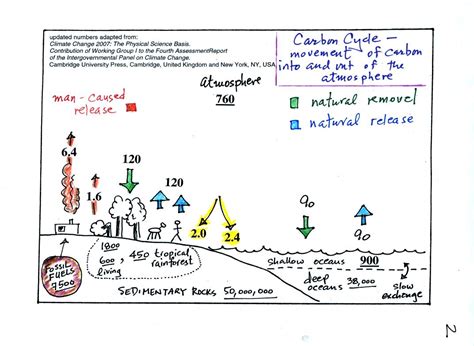 updated numbers adapted from:
Climate Change 2007: The Physical Science Basis.
Contribution of Working Group I to the Fourth AssessmentReport
of the Intergovernmental Panel on Climate Change.
Cambridge University Press, Cambridge, United Kingdom and New York, NY, USA
Carbon Cycle -
movement of Carbon
into and out of the
atmosphere
atmosphere
760
man-caused
release
natural removel
natural release
6.4
1.6
120
120
2.0
2.4
90
90
FOSSIL
FUELS
7500
1800
600, 450 tropical
rainforest
living
shallow oceans 900
deep
oceans 38,000
slow
exchange
SEDIMENTARY ROCKS 50,000,000
2